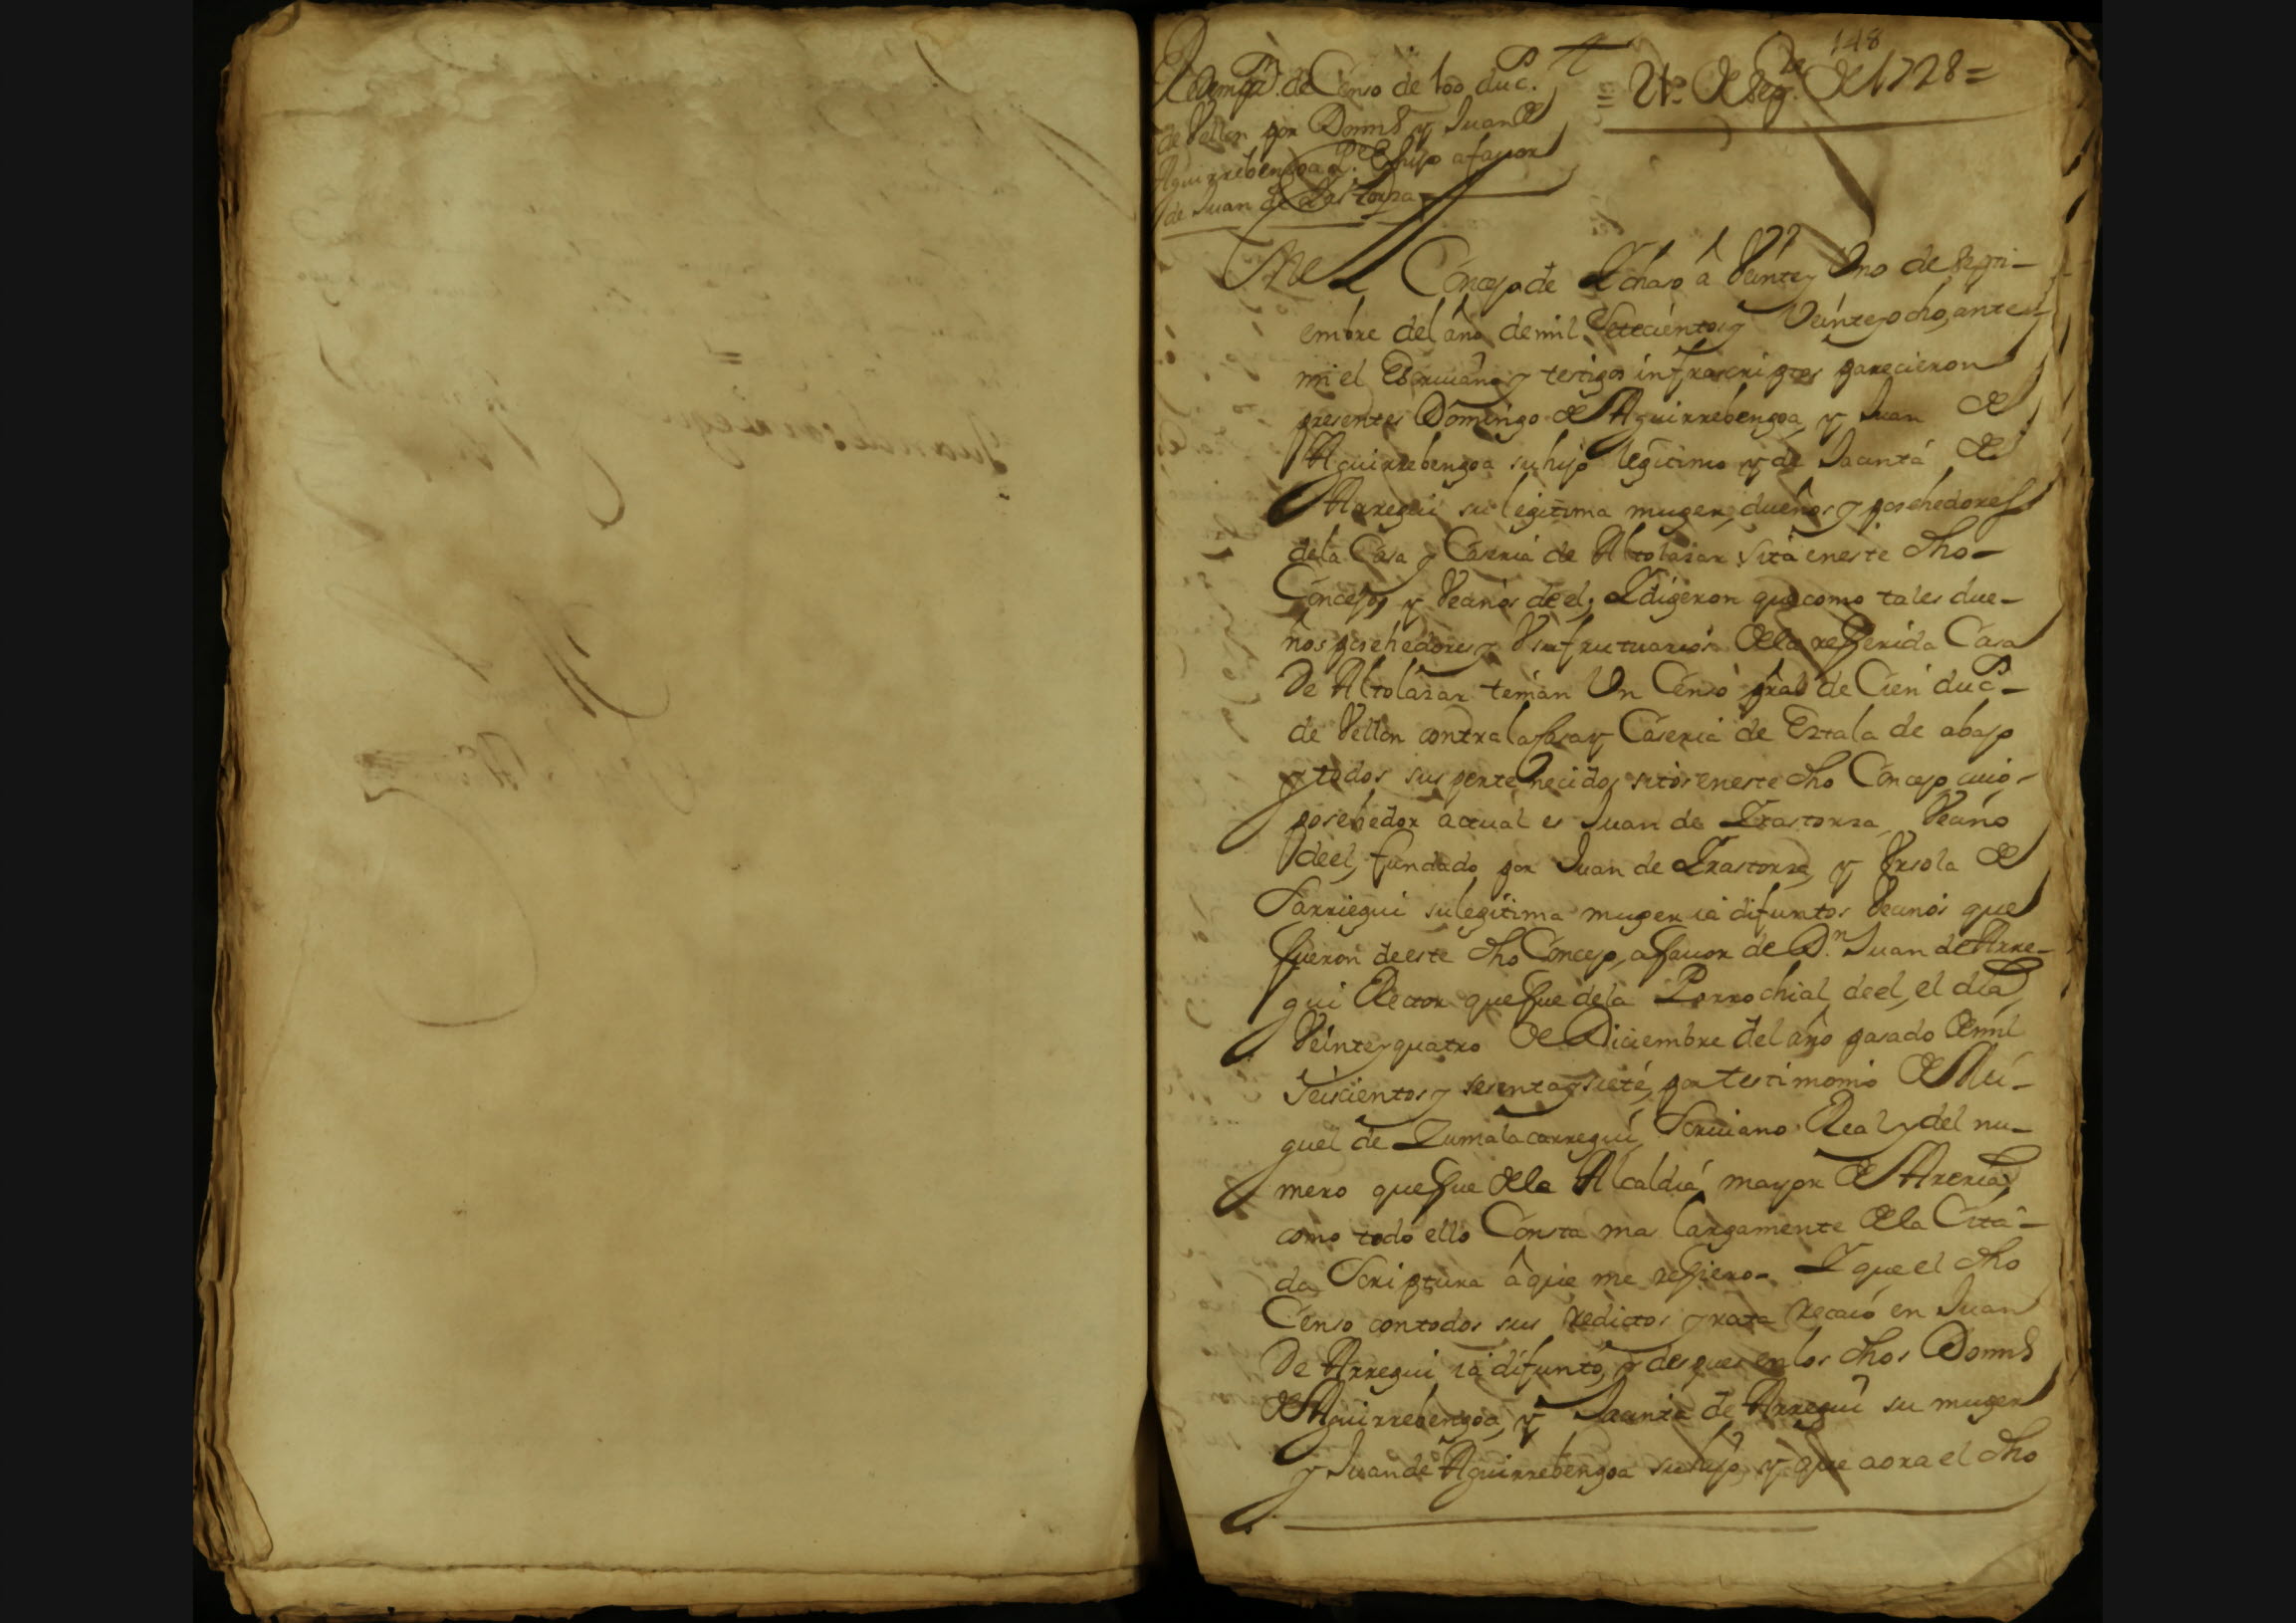 148
Redempⁿ. de Censo de 100 duc.ˢ
de Vellon por Domº y Juan de
Aguirrebengoa Pᵉ. e hijo a fauor
de Juan de Irastorza
= 21º. de Sepᵗᵉ. de 1728 =
En el Concejo de Ichaso â Veinte y Uno de Septi-
embre del año de mil Setecientos y Veinte y ocho, ante
mi el Escriuano y testigos infrascriptos parecieron
presentes Domingo de Aguirrebengoa, y Juan de
Aguirrebengoa su hijo legitimo y de Jacinta de
Arregui su legitima muger, dueños y posehedores
de la Casa y Caseria de Altolazar sita en este dho
Concejo, y Vecinos de el, I digeron que como tales due-
ños posehedores y Usufructuarios de la refferida Casa
De Altolazar tenian Un Censo pral de Cien duc.ˢ
de Vellon contra la Casa y Caseria de Eztala de abajo
y todos sus pertenecidos sitos en este dho Concejo, cuio
posehedor actual es Juan de Irastorza Vecino
de el, fundado por Juan de Irastorza, y Ursola de
Sarriegui su legitima muger ia difuntos Vecinos que
fueron de este dho Concejo, a fauor de Dⁿ. Juan de Arre-
gui Rector que fue de la Parrochial de el, el dia
Veinte y quatro de Diciembre del año pasado de mil
Seiscientos y sesenta y siete, por testimonio de Mi-
guel de Zumalacarregui, Scriuano Real y del nu-
mero que fue de la Alcaldia mayor de Areria,
como todo ello Consta mas largamente de la Cita-
da Scriptura â que me refiero. I que el dho
Censo con todos sus redictos y rata recaió en Juan
De Arregui ia difunto, y despues en los dhos Domº
de Aguirrebengoa, y Jacinta de Arregui su muger
y Juan de Aguirrebengoa su hijo, y que aora el dho